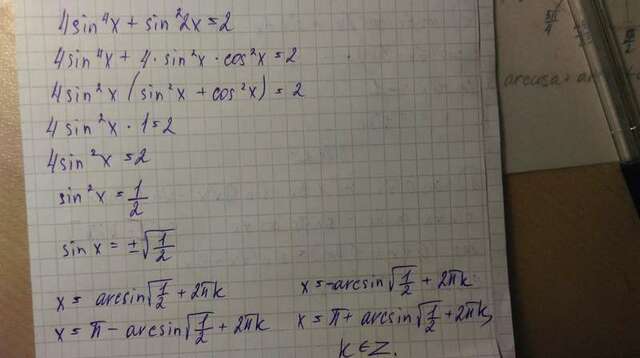 4sin⁴x + sin²2x = 2
4sin⁴x + 4 · sin²x · cos²x = 2
4sin²x (sin²x + cos²x) = 2
4sin²x · 1 = 2
4sin²x = 2
sin²x = 1/2
sin x = ±√(1/2)
x = arcsin√(1/2) + 2πk
x = π - arcsin√(1/2) + 2πk
x = -arcsin√(1/2) + 2πk
x = π + arcsin√(1/2) + 2πk,
k ∈ Z.